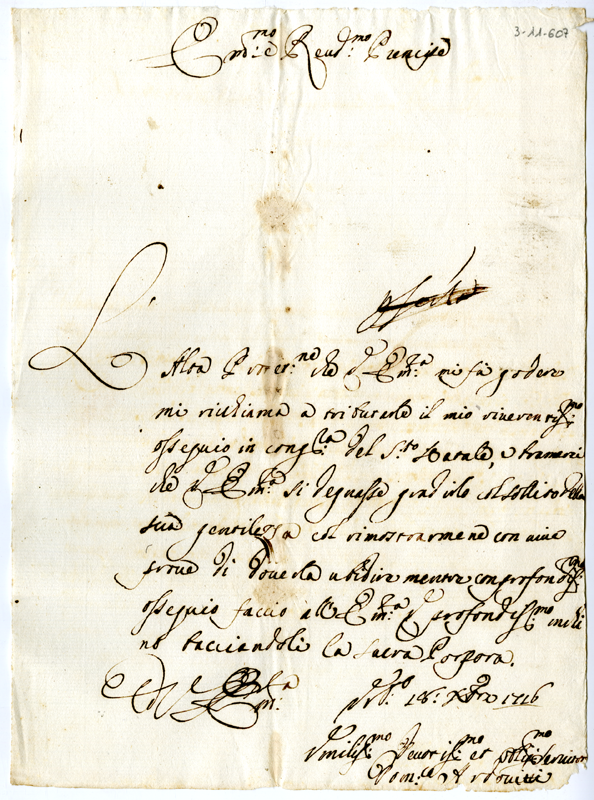 3-11-607
Em.mo e Reud.mo Prencipe
L'
Alta Protet.ne che V. Em.za mi fà godere
mi richiama a tributarle il mio riuerentiss.mo
ossequio in cong.ra del S.to Natale, e bramerei
che V. Em.za si degnasse gradirlo col solito della
sua gentilezza col rimostrarmene con
proue di douerla ubidire mentre con profondiss.mo
ossequio faccio all' Em.za V. profondiss.mo inchi
no bacciandoli la Sacra Porpora.
Di V. Em.za
18: Xbre 1716
Vmiliss.mo Deuotiss.mo et Obligat.mo Seruitore
Dom.co